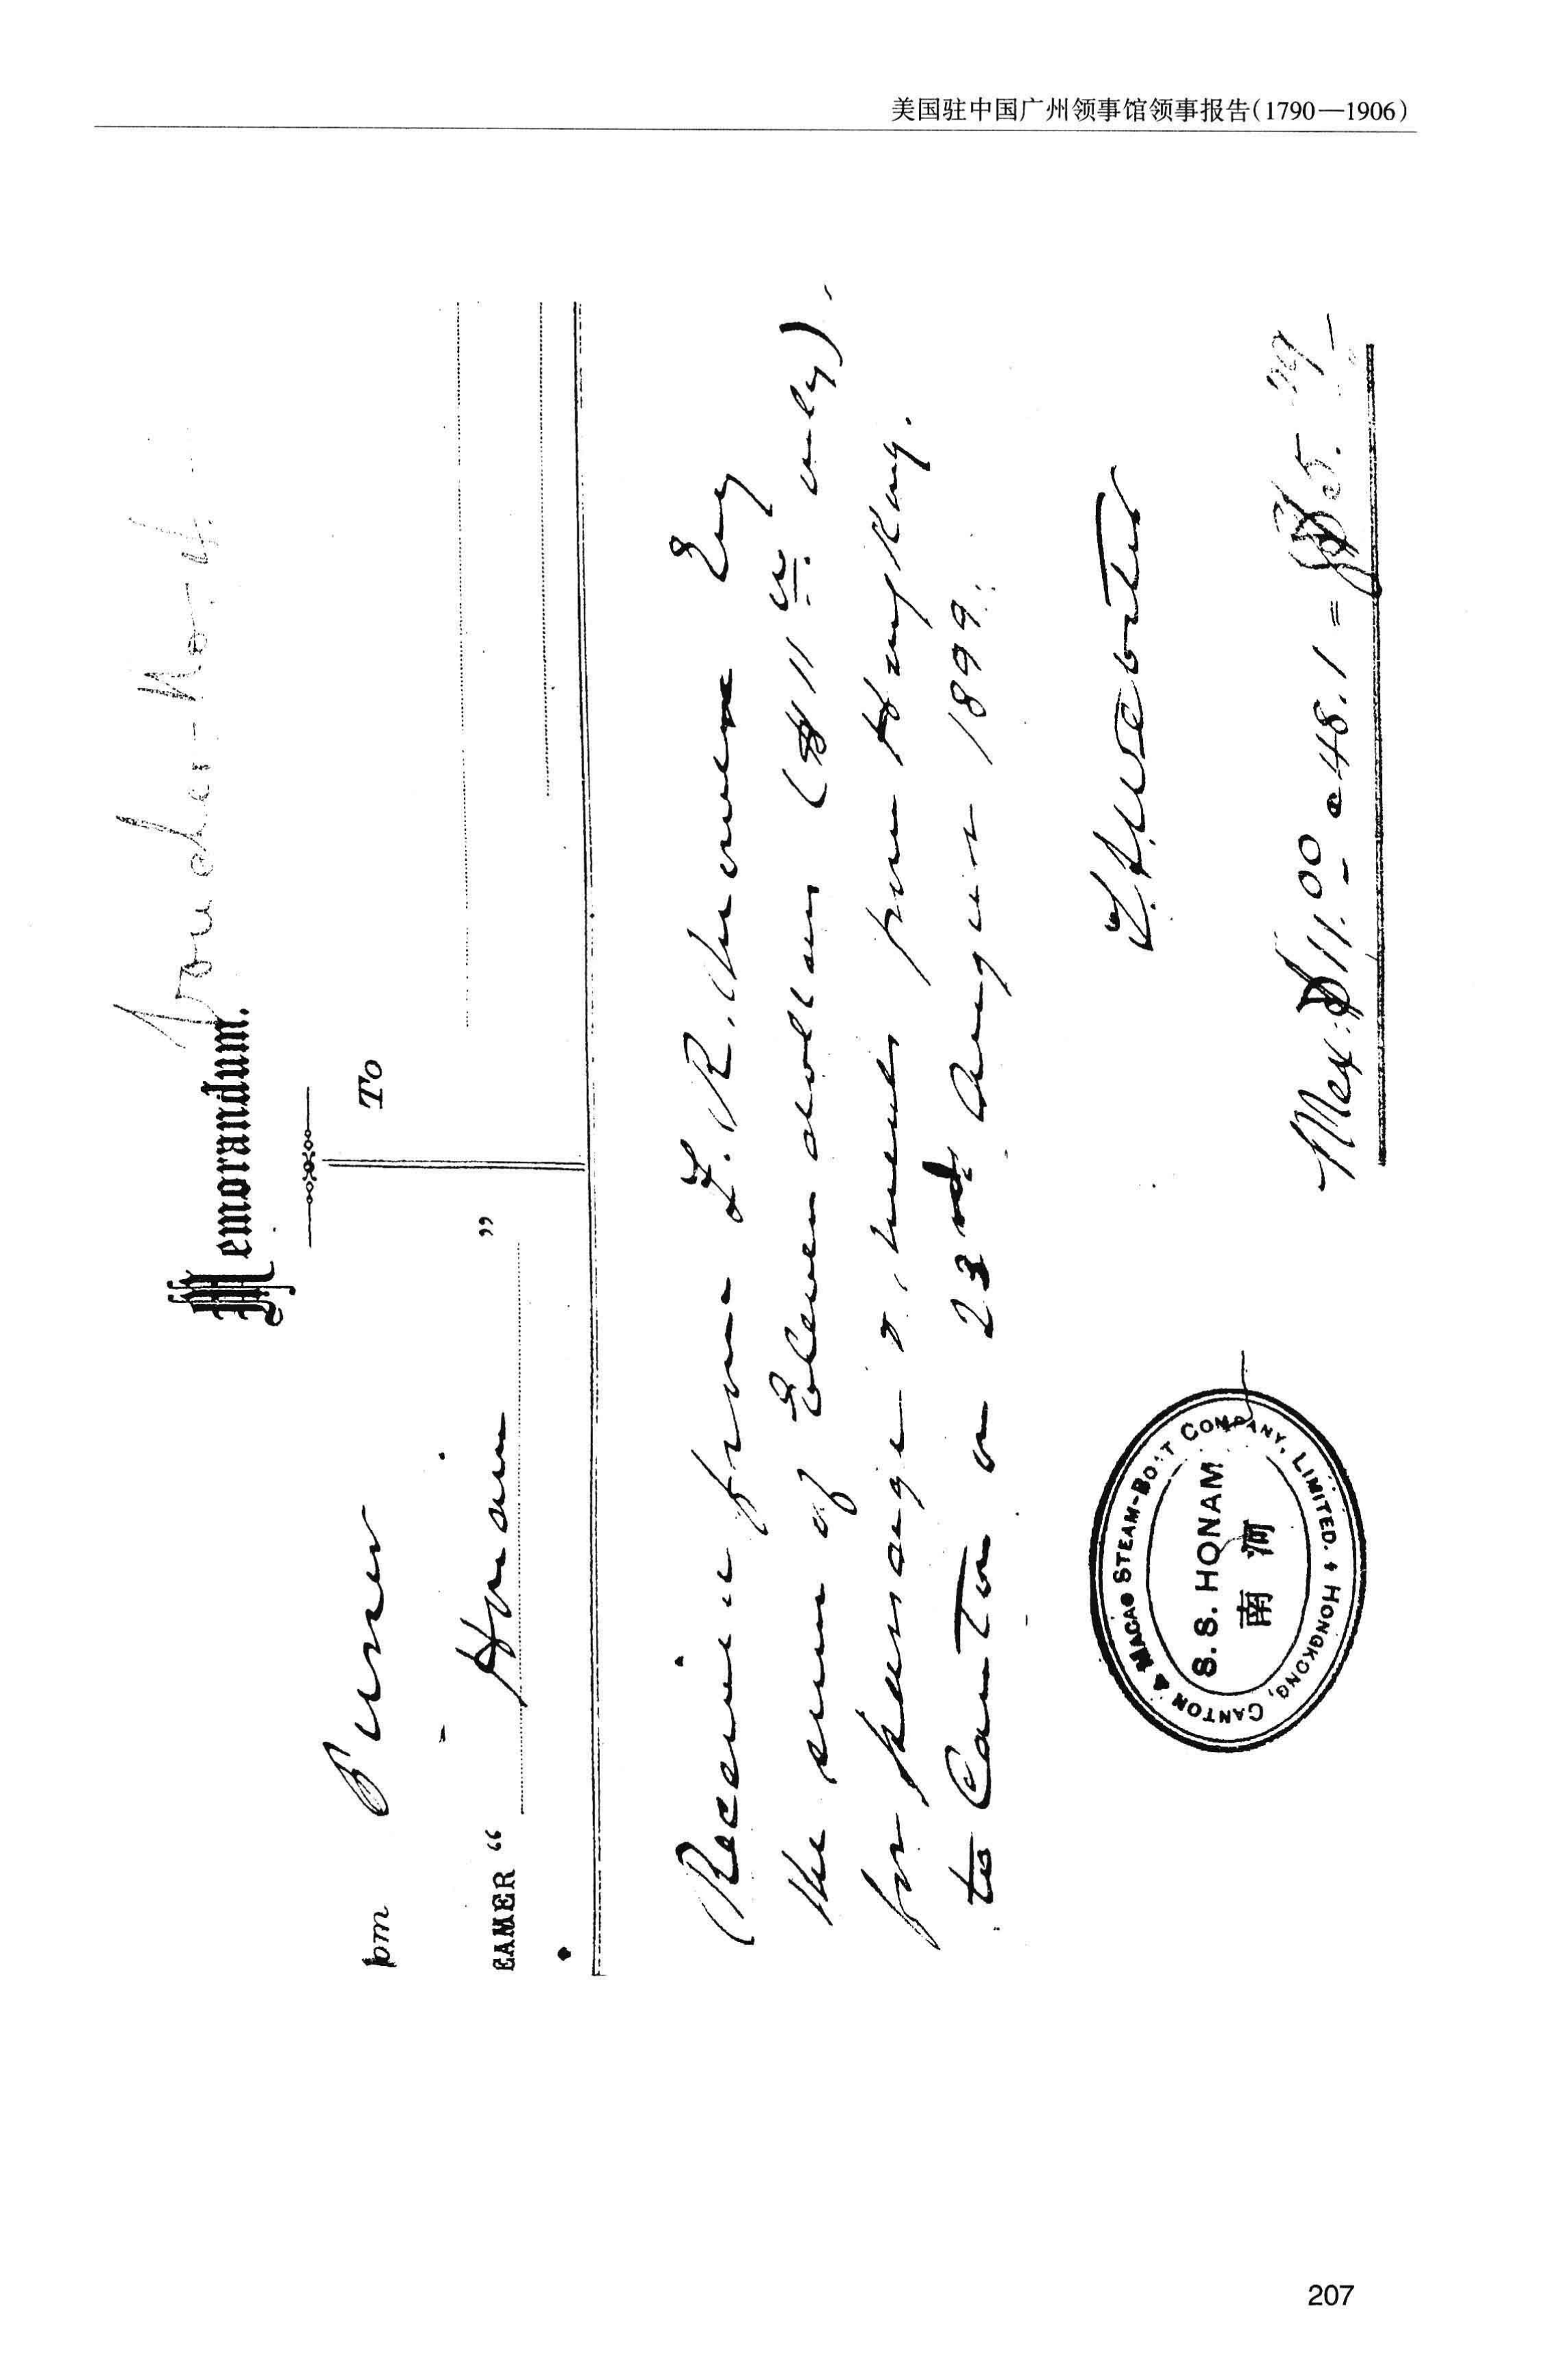 美国驻中国广州领事馆领事报告(1790—1906)
Voucher No. 4.
Memorandum.
om Purser
To
EAMER “ Honam ”
Received from E. R. Esq
the sum of Eleven dollars ($11 only).
for passage & meals from Hongkong.
to Canton on 23rd August 1899.
Mex: $11.00 @ 48.1 = $5.29
HONGKONG, CANTON & MACAO STEAM-BOAT COMPANY, LIMITED.
S.S. HONAM
河南
207